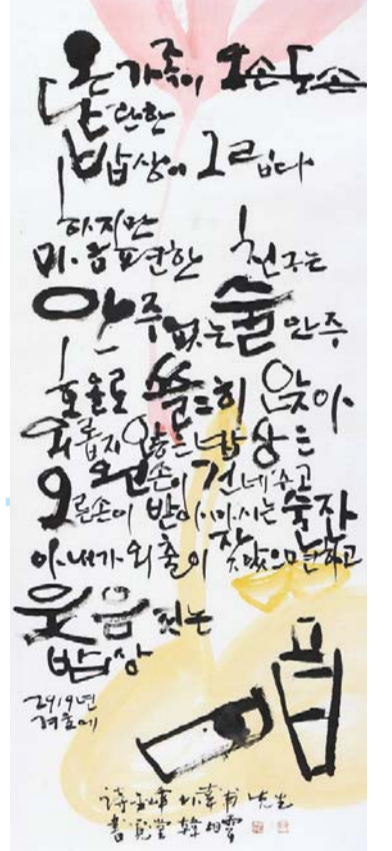 온 가족이 오손도손
단란한
밥상이 그립다
하지만
마음 편한 친구는
안주 없는 술 안주
홀로 쓸쓸히 앉아
외롭지 않은 밥상은
왼손이 건네주고
오른손이 받아 마시는 술잔
아내가 외출이 잦았으면 하고
웃음 짓는
밥상
2919년
겨울에